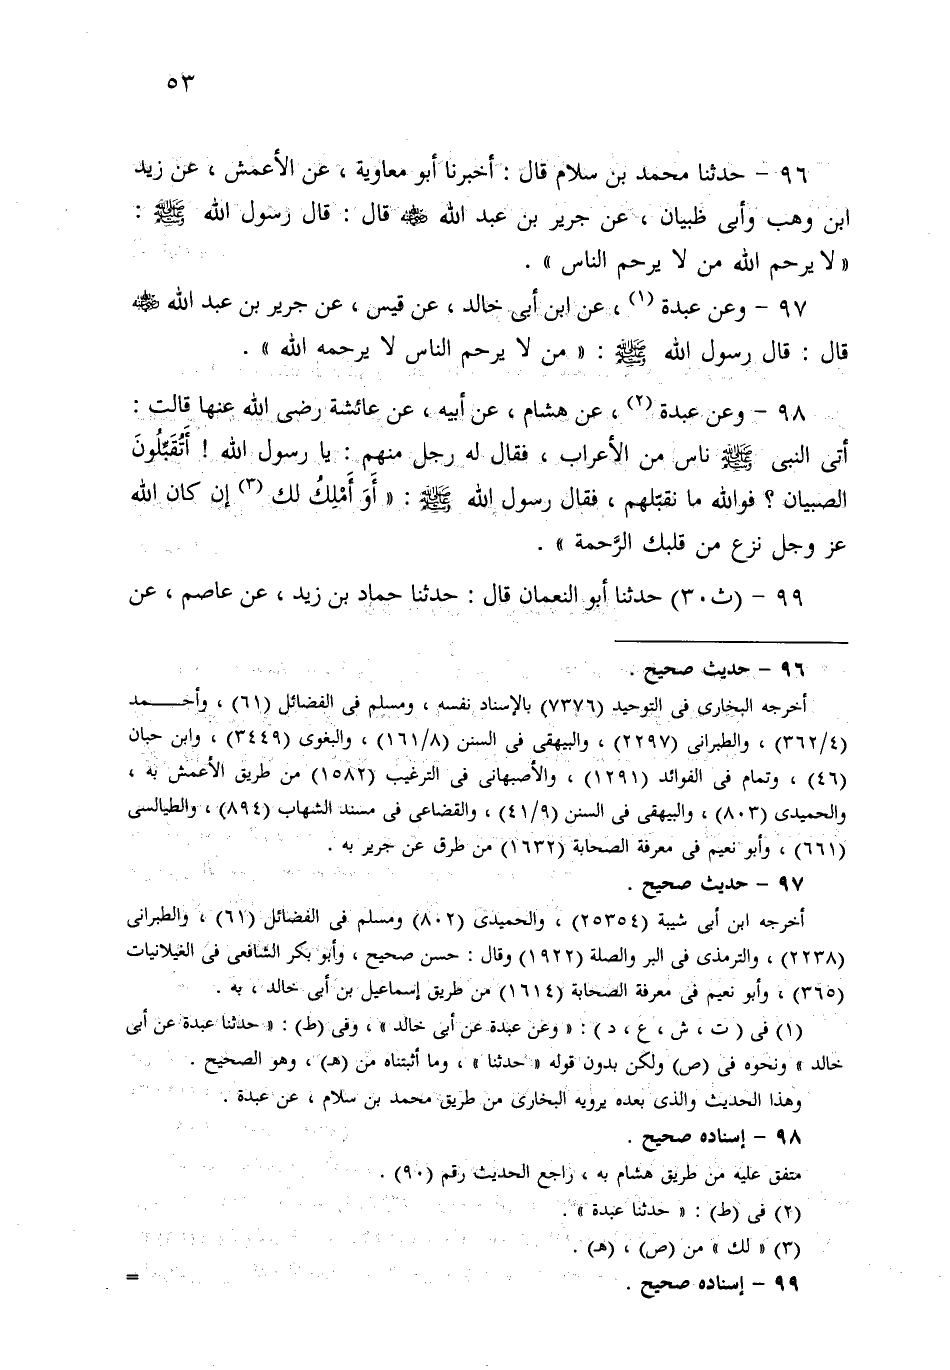 ٥٣
٩٦ - حدثنا محمد بن سلام قال : أخبرنا أبو معاوية ، عن الأعمش ، عن زيد
ابن وهب وأبى ظبيان ، عن جرير بن عبد الله رضي الله عنه قال : قال رسول الله ﷺ :
« لا يرحم الله من لا يرحم الناس » .
٩٧ - وعن عبدة (١) ، عن ابن أبى خالد ، عن قيس ، عن جرير بن عبد الله رضي الله عنه
قال : قال رسول الله ﷺ : « من لا يرحم الناس لا يرحمه الله » .
٩٨ - وعن عبدة (٢) ، عن هشام ، عن أبيه ، عن عائشة رضى الله عنها قالت :
أتى النبى ﷺ ناس من الأعراب ، فقال له رجل منهم : يا رسول الله ! أَتُقَبِّلُونَ
الصبيان ؟ فوالله ما نقبّلهم ، فقال رسول الله ﷺ : « أَوَ أَمْلِكُ لك (٣) إن كان الله
عز وجل نزع من قلبك الرَّحمة » .
٩٩ - (ث٣٠) حدثنا أبو النعمان قال : حدثنا حماد بن زيد ، عن عاصم ، عن
٩٦ - حديث صحيح .
أخرجه البخارى فى التوحيد (٧٣٧٦) بالإسناد نفسه ، ومسلم فى الفضائل (٦١) ، وأحـــمد
(٣٦٢/٤) ، والطبرانى (٢٢٩٧) ، والبيهقى فى السنن (١٦١/٨) ، والبغوى (٣٤٤٩) ، وابن حبان
(٤٦) ، وتمام فى الفوائد (١٢٩١) ، والأصبهانى فى الترغيب (١٥٨٢) من طريق الأعمش به ،
والحميدى (٨٠٣) ، والبيهقى فى السنن (٤١/٩) ، والقضاعى فى مسند الشهاب (٨٩٤) ، والطيالسى
(٦٦١) ، وأبو نعيم فى معرفة الصحابة (١٦٣٢) من طرق عن جرير به .
٩٧ - حديث صحيح .
أخرجه ابن أبي شيبة (٢٥٣٥٤) ، والحميدى (٨٠٢) ومسلم فى الفضائل (٦١) ، والطبرانى
(٢٢٣٨) ، والترمذى فى البر والصلة (١٩٢٢) وقال : حسن صحيح ، وأبو بكر الشافعى فى الغيلانيات
(٣٦٥) ، وأبو نعيم فى معرفة الصحابة (١٦١٤) من طريق إسماعيل بن أبى خالد ، به .
(١) فى ( ت ، ش ، ع ، د ) : « وعن عبدة عن أبى خالد » ، وفى (ط) : « حدثنا عبدة عن أبى
خالد » ونحوه فى (ص) ولكن بدون قوله « حدثنا » ، وما أثبتناه من (هـ) ، وهو الصحيح .
وهذا الحديث والذى بعده يرويه البخارى من طريق محمد بن سلام ، عن عبدة .
٩٨ - إسناده صحيح .
متفق عليه من طريق هشام به ، راجع الحديث رقم (٩٠) .
(٢) فى (ط) : « حدثنا عبدة » .
(٣) « لك » من (ص) ، (هـ) .
٩٩ - إسناده صحيح . =